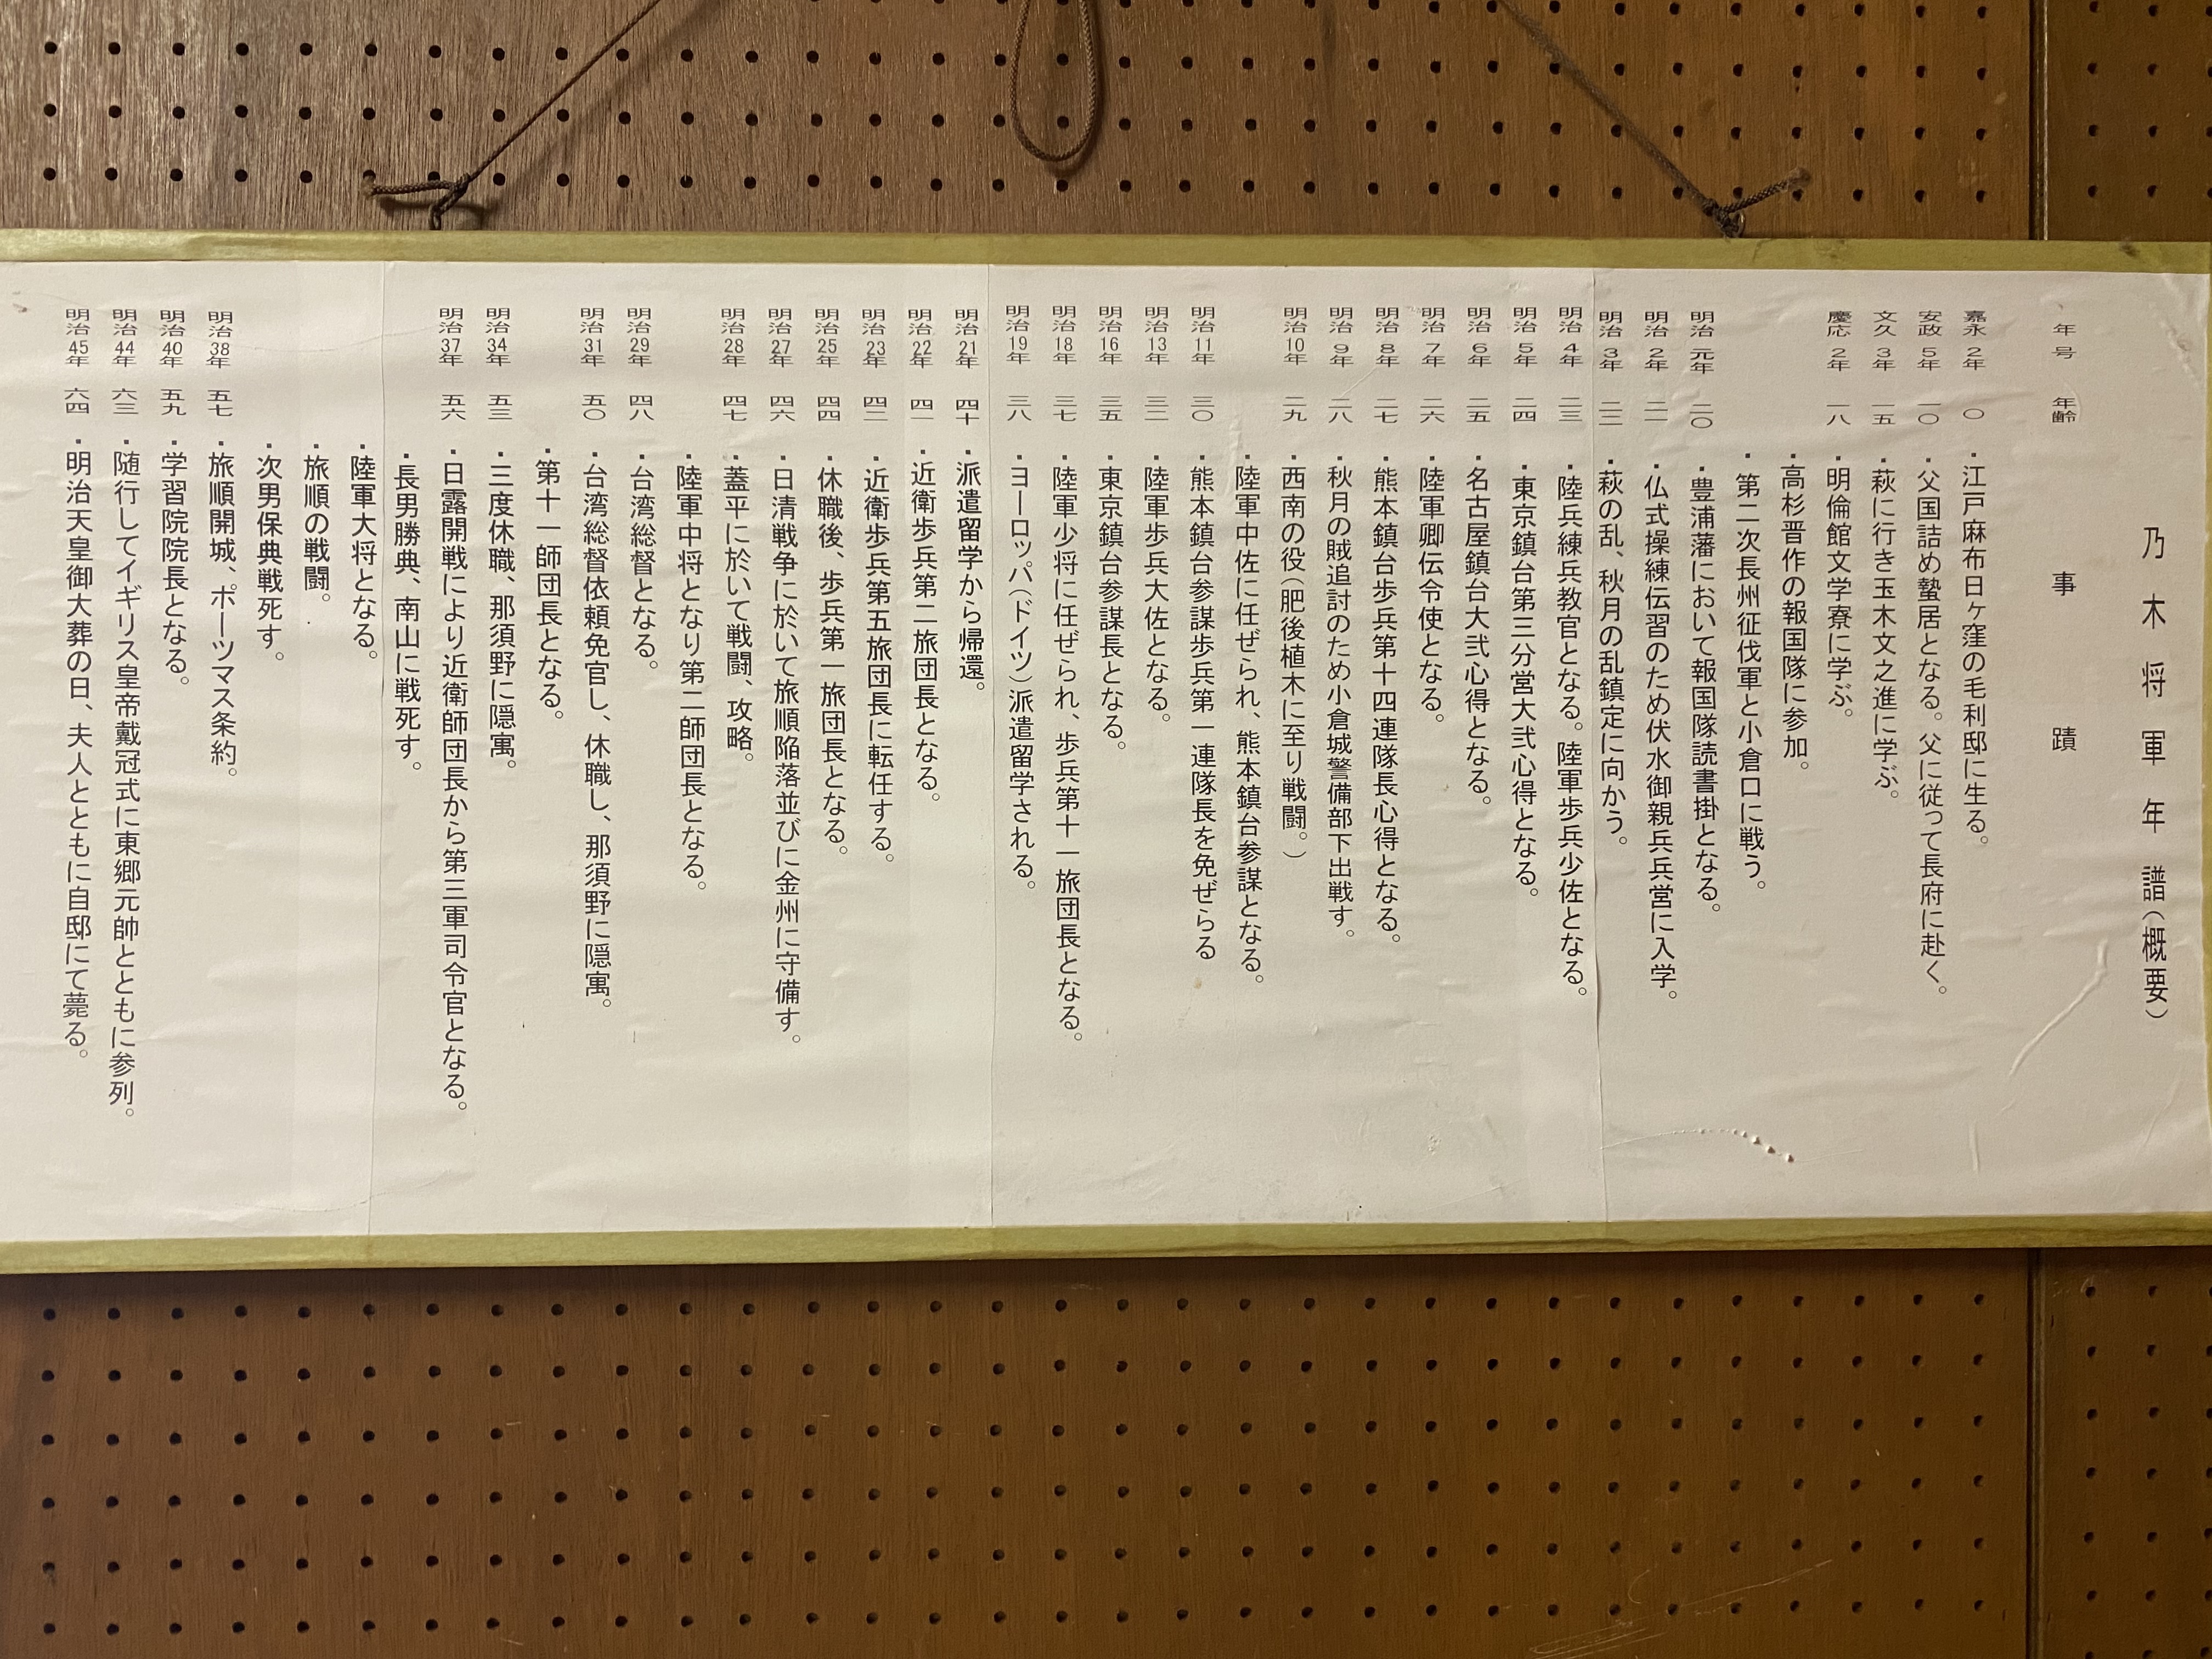 乃木将軍年譜（概要）
年号 年齢 事蹟
嘉永2年 〇 ・江戸麻布日ヶ窪の毛利邸に生る。
安政5年 一〇 ・父国詰め蟄居となる。父に従って長府に赴く。
文久3年 一五 ・萩に行き玉木文之進に学ぶ。
慶応2年 一八 ・明倫館文学寮に学ぶ。
・高杉晋作の報国隊に参加。
・第二次長州征伐軍と小倉口に戦う。
明治元年 二〇 ・豊浦藩において報国隊読書掛となる。
明治2年 二一 ・仏式操練伝習のため伏水御親兵兵営に入学。
明治3年 二二 ・萩の乱、秋月の乱鎮定に向かう。
明治4年 二三 ・陸兵練兵教官となる。陸軍歩兵少佐となる。
明治5年 二四 ・東京鎮台第三分営大弐心得となる。
明治6年 二五 ・名古屋鎮台大弐心得となる。
明治7年 二六 ・陸軍卿伝令使となる。
明治8年 二七 ・熊本鎮台歩兵第十四連隊長心得となる。
明治9年 二八 ・秋月の賊追討のため小倉城警備部下出戦す。
明治10年 二九 ・西南の役（肥後植木に至り戦闘。）
・陸軍中佐に任ぜられ、熊本鎮台参謀となる。
明治11年 三〇 ・熊本鎮台参謀歩兵第一連隊長を免ぜらる
明治13年 三二 ・陸軍歩兵大佐となる。
明治16年 三五 ・東京鎮台参謀長となる。
明治18年 三七 ・陸軍少将に任ぜられ、歩兵第十一旅団長となる。
明治19年 三八 ・ヨーロッパ（ドイツ）派遣留学される。
明治21年 四十 ・派遣留学から帰還。
明治22年 四一 ・近衛歩兵第二旅団長となる。
明治23年 四二 ・近衛歩兵第五旅団長に転任する。
明治25年 四四 ・休職後、歩兵第一旅団長となる。
明治27年 四六 ・日清戦争に於いて旅順陥落並びに金州に守備す。
明治28年 四七 ・蓋平に於いて戦闘、攻略。
・陸軍中将となり第二師団長となる。
明治29年 四八 ・台湾総督となる。
明治31年 五〇 ・台湾総督依頼免官し、休職し、那須野に隠寓。
・第十一師団長となる。
明治34年 五三 ・三度休職、那須野に隠寓。
明治37年 五六 ・日露開戦により近衛師団長から第三軍司令官となる。
・長男勝典、南山に戦死す。
・陸軍大将となる。
・旅順の戦闘。
・次男保典戦死す。
明治38年 五七 ・旅順開城、ポーツマス条約。
明治40年 五九 ・学習院院長となる。
明治44年 六三 ・随行してイギリス皇帝戴冠式に東郷元帥とともに参列。
明治45年 六四 ・明治天皇御大葬の日、夫人とともに自邸にて薨る。